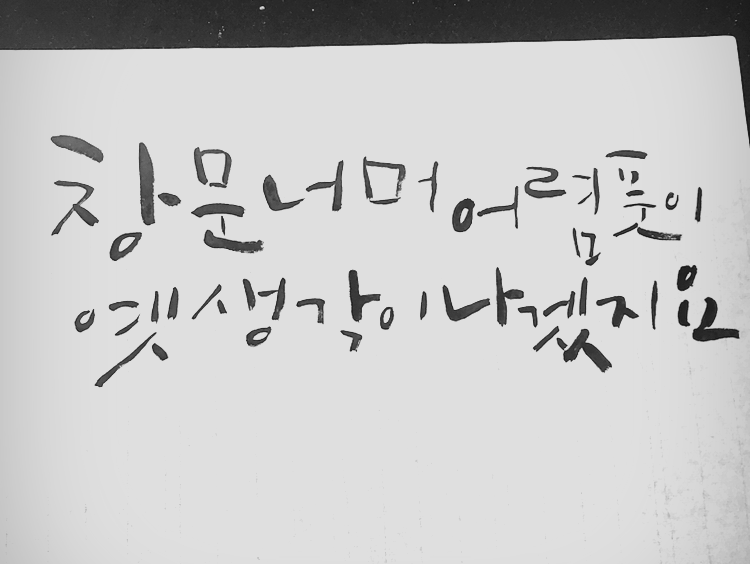 창문너머 어렴풋이
옛 생각이 나겠지요